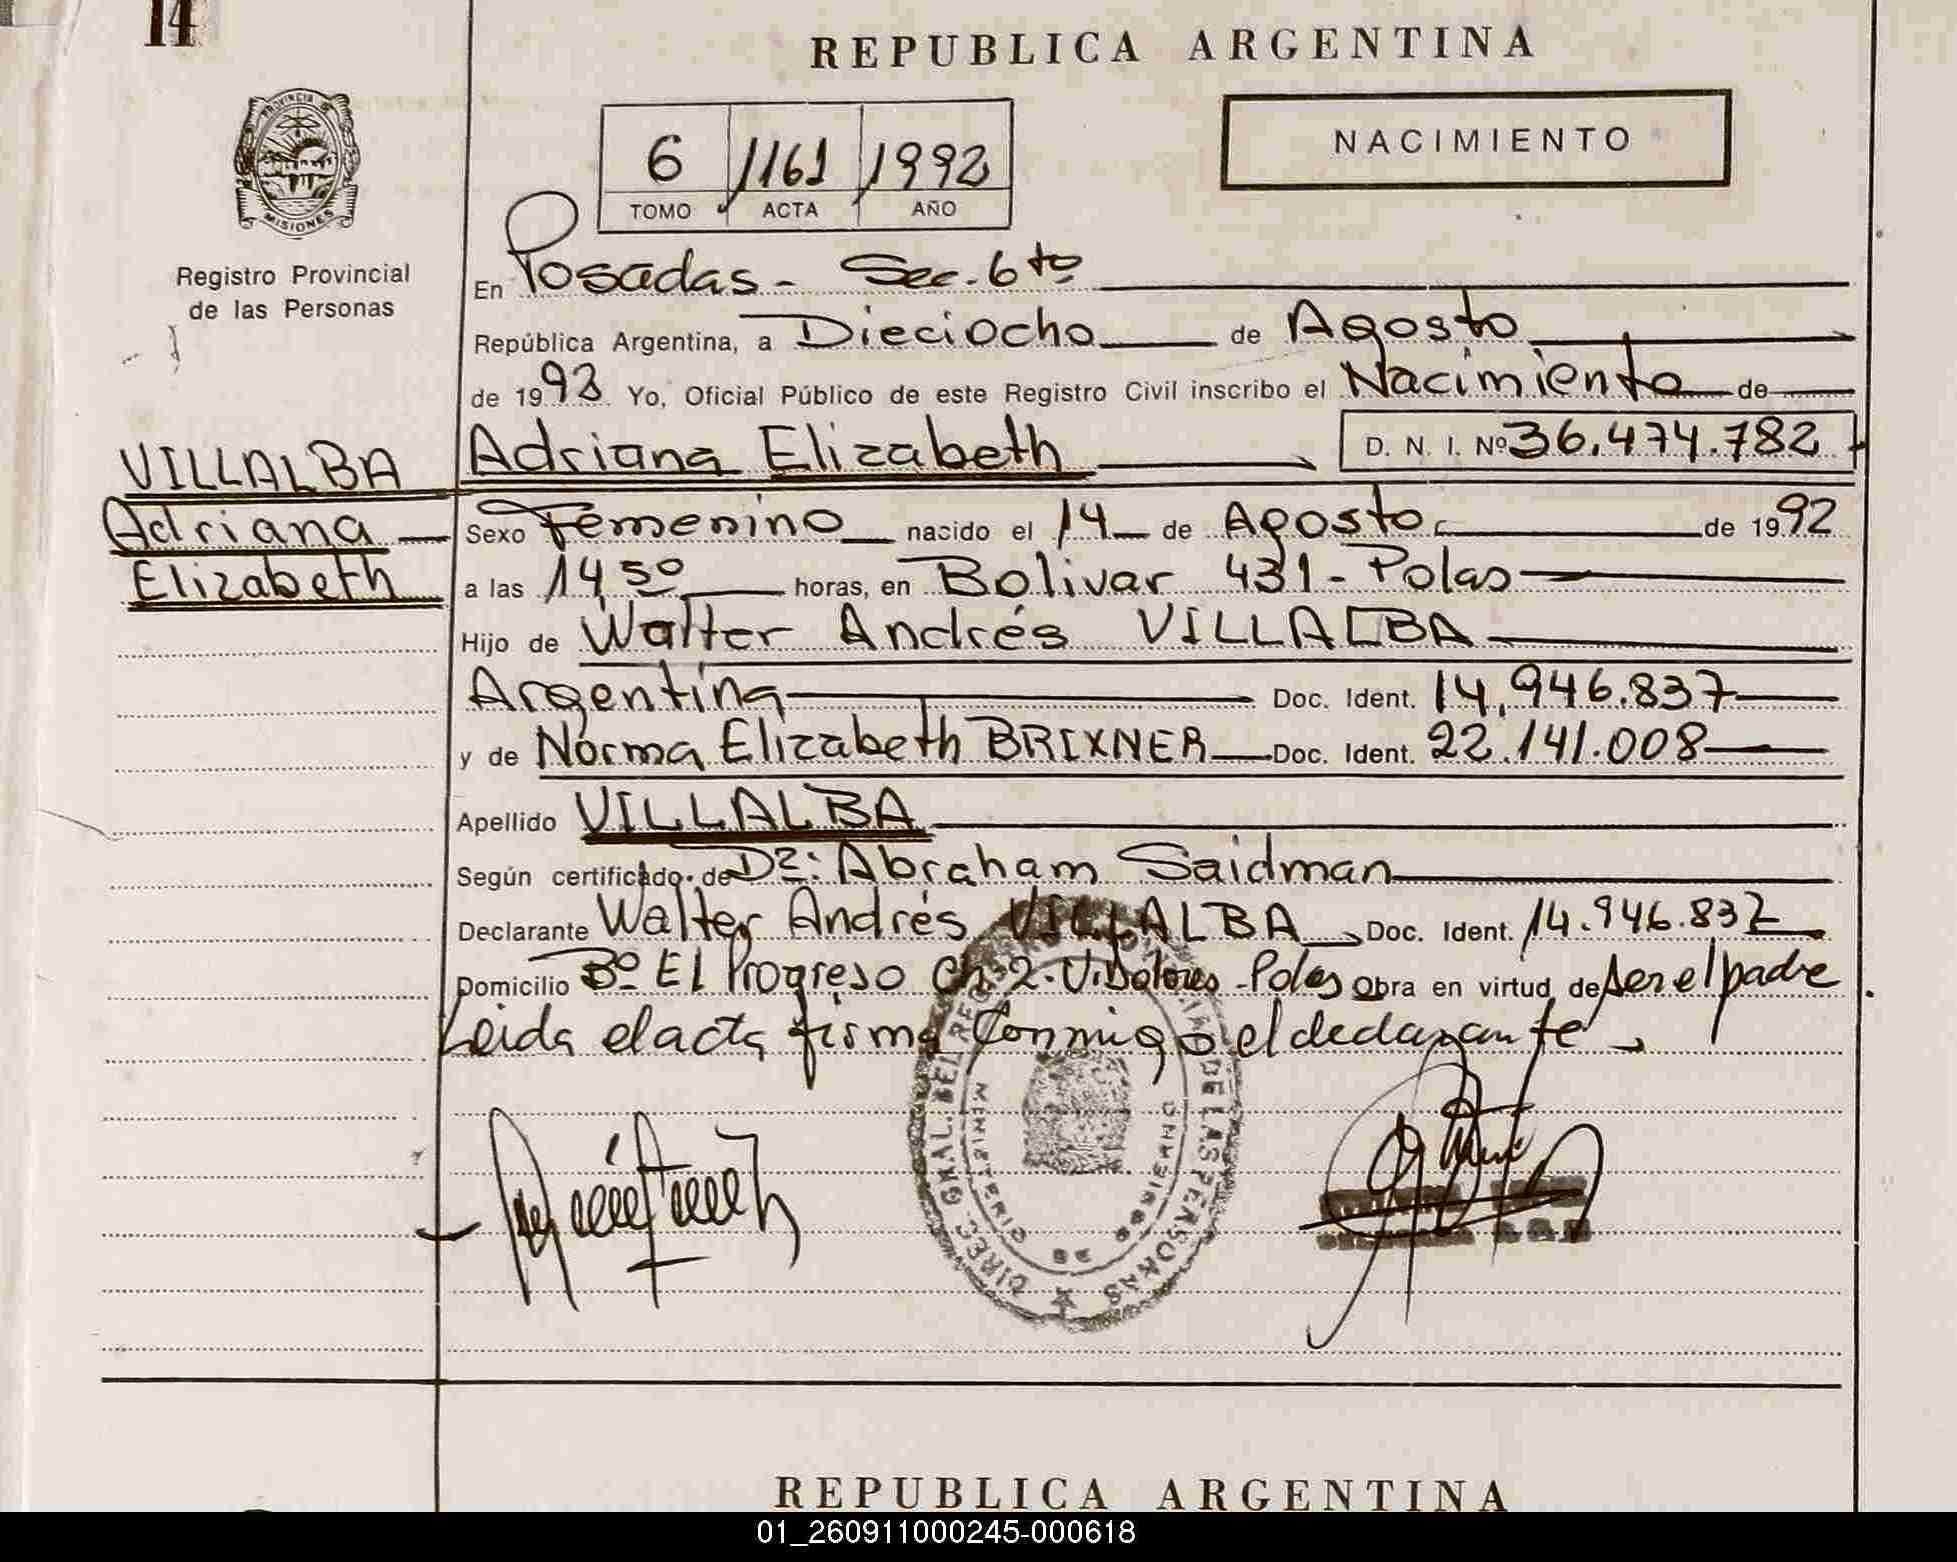 14
REPUBLICA ARGENTINA
PROVINCIA DE
MISIONES
Registro Provincial
de las Personas
6 1161 1992
TOMO ACTA AÑO
NACIMIENTO
En Posadas - Sec. 6to
República Argentina, a Dieciocho de Agosto
de 1992 Yo, Oficial Público de este Registro Civil inscribo el Nacimiento de
VILLALBA
Adriana
Elizabeth
Adriana Elizabeth D. N. I. Nº 36.474.782
Sexo Femenino nacido el 14 de Agosto de 1992
a las 14,50 horas, en Bolivar 431 - Pdas
Hijo de Walter Andrés VILLALBA
Argentina Doc. Ident. 14.946.837
y de Norma Elizabeth BRIXNER Doc. Ident. 22.141.008
Apellido VILLALBA
Según certificado de Dr: Abraham Saidman
Declarante Walter Andrés VILLALBA Doc. Ident. 14.946.837
Domicilio Bº El Progreso Ch. 2 - V. Dolores - Pdas Obra en virtud de ser el padre
Leida el acta firma conmigo el declarante
DIREC. GRAL. DEL REGISTRO DE LAS PERSONAS
MINISTERIO DE GOBIERNO
REPUBLICA ARGENTINA
01_260911000245-000618